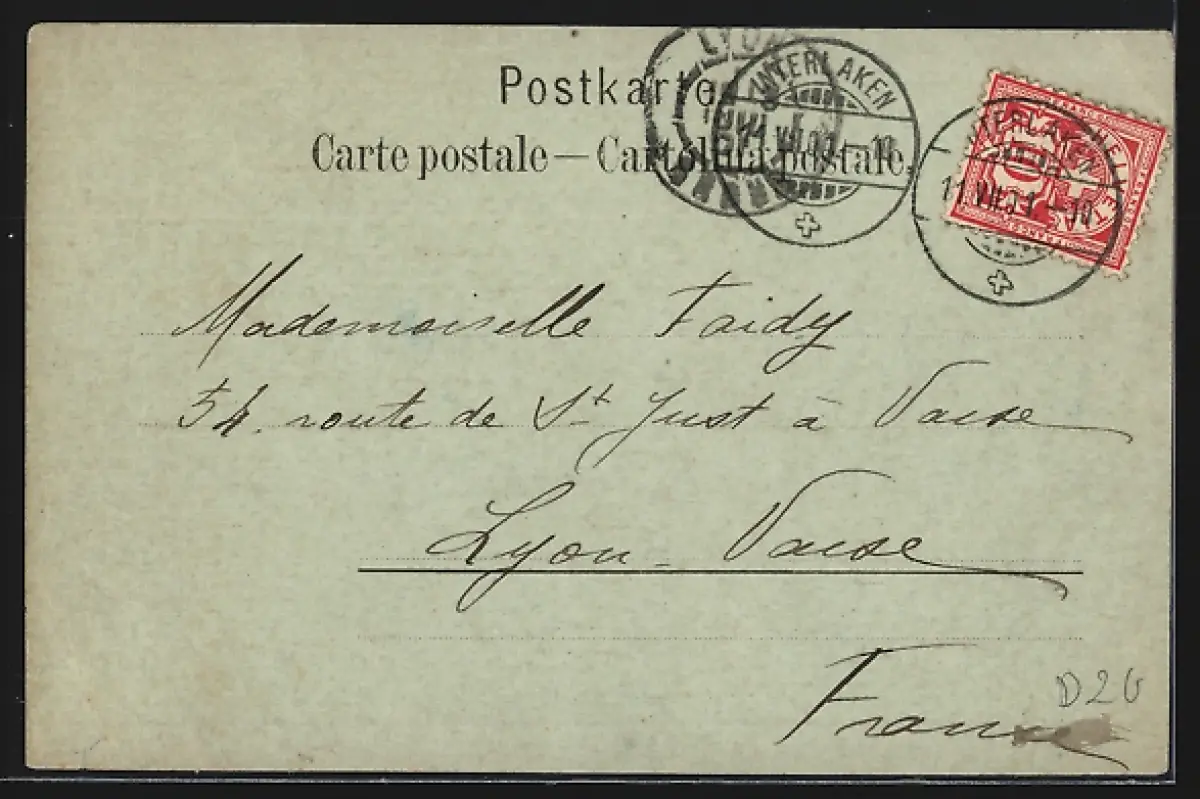 Postkarte
Carte postale — Cartolina postale.
LYON
INTERLAKEN
INTERLAKEN
11.VII.01.-10
FRANCO HELVETIA
10
Mademoiselle Faidy
54. route de St Just à Vaise
Lyon-Vaise
France
D26